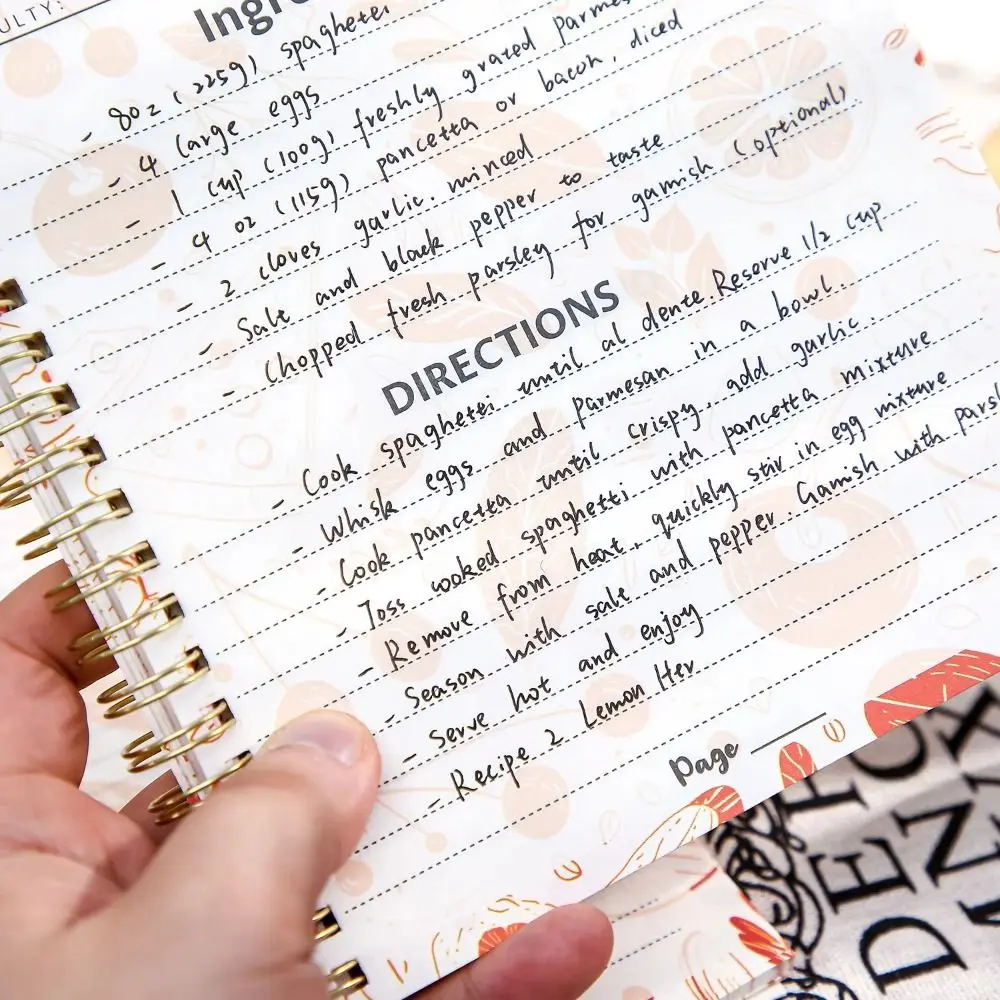 ULTY:
Ingre
- 8oz (225g) spaghetti
- 4 large eggs
- 1 cup (100g) freshly grated Parmes
- 4 oz (115g) pancetta or bacon, diced
- 2 cloves garlic, minced
- Salt and black pepper to taste
- Chopped fresh parsley for garnish (optional)
DIRECTIONS
- Cook spaghetti until al dente. Reserve 1/2 cup
- Whisk eggs and Parmesan in a bowl.
- Cook pancetta until crispy, add garlic.
- Toss cooked spaghetti with pancetta mixture
- Remove from heat, quickly stir in egg mxture
- Season with salt and pepper. Garnish with parsl
- Serve hot and enjoy
- Recipe 2 Lemon Her
Page